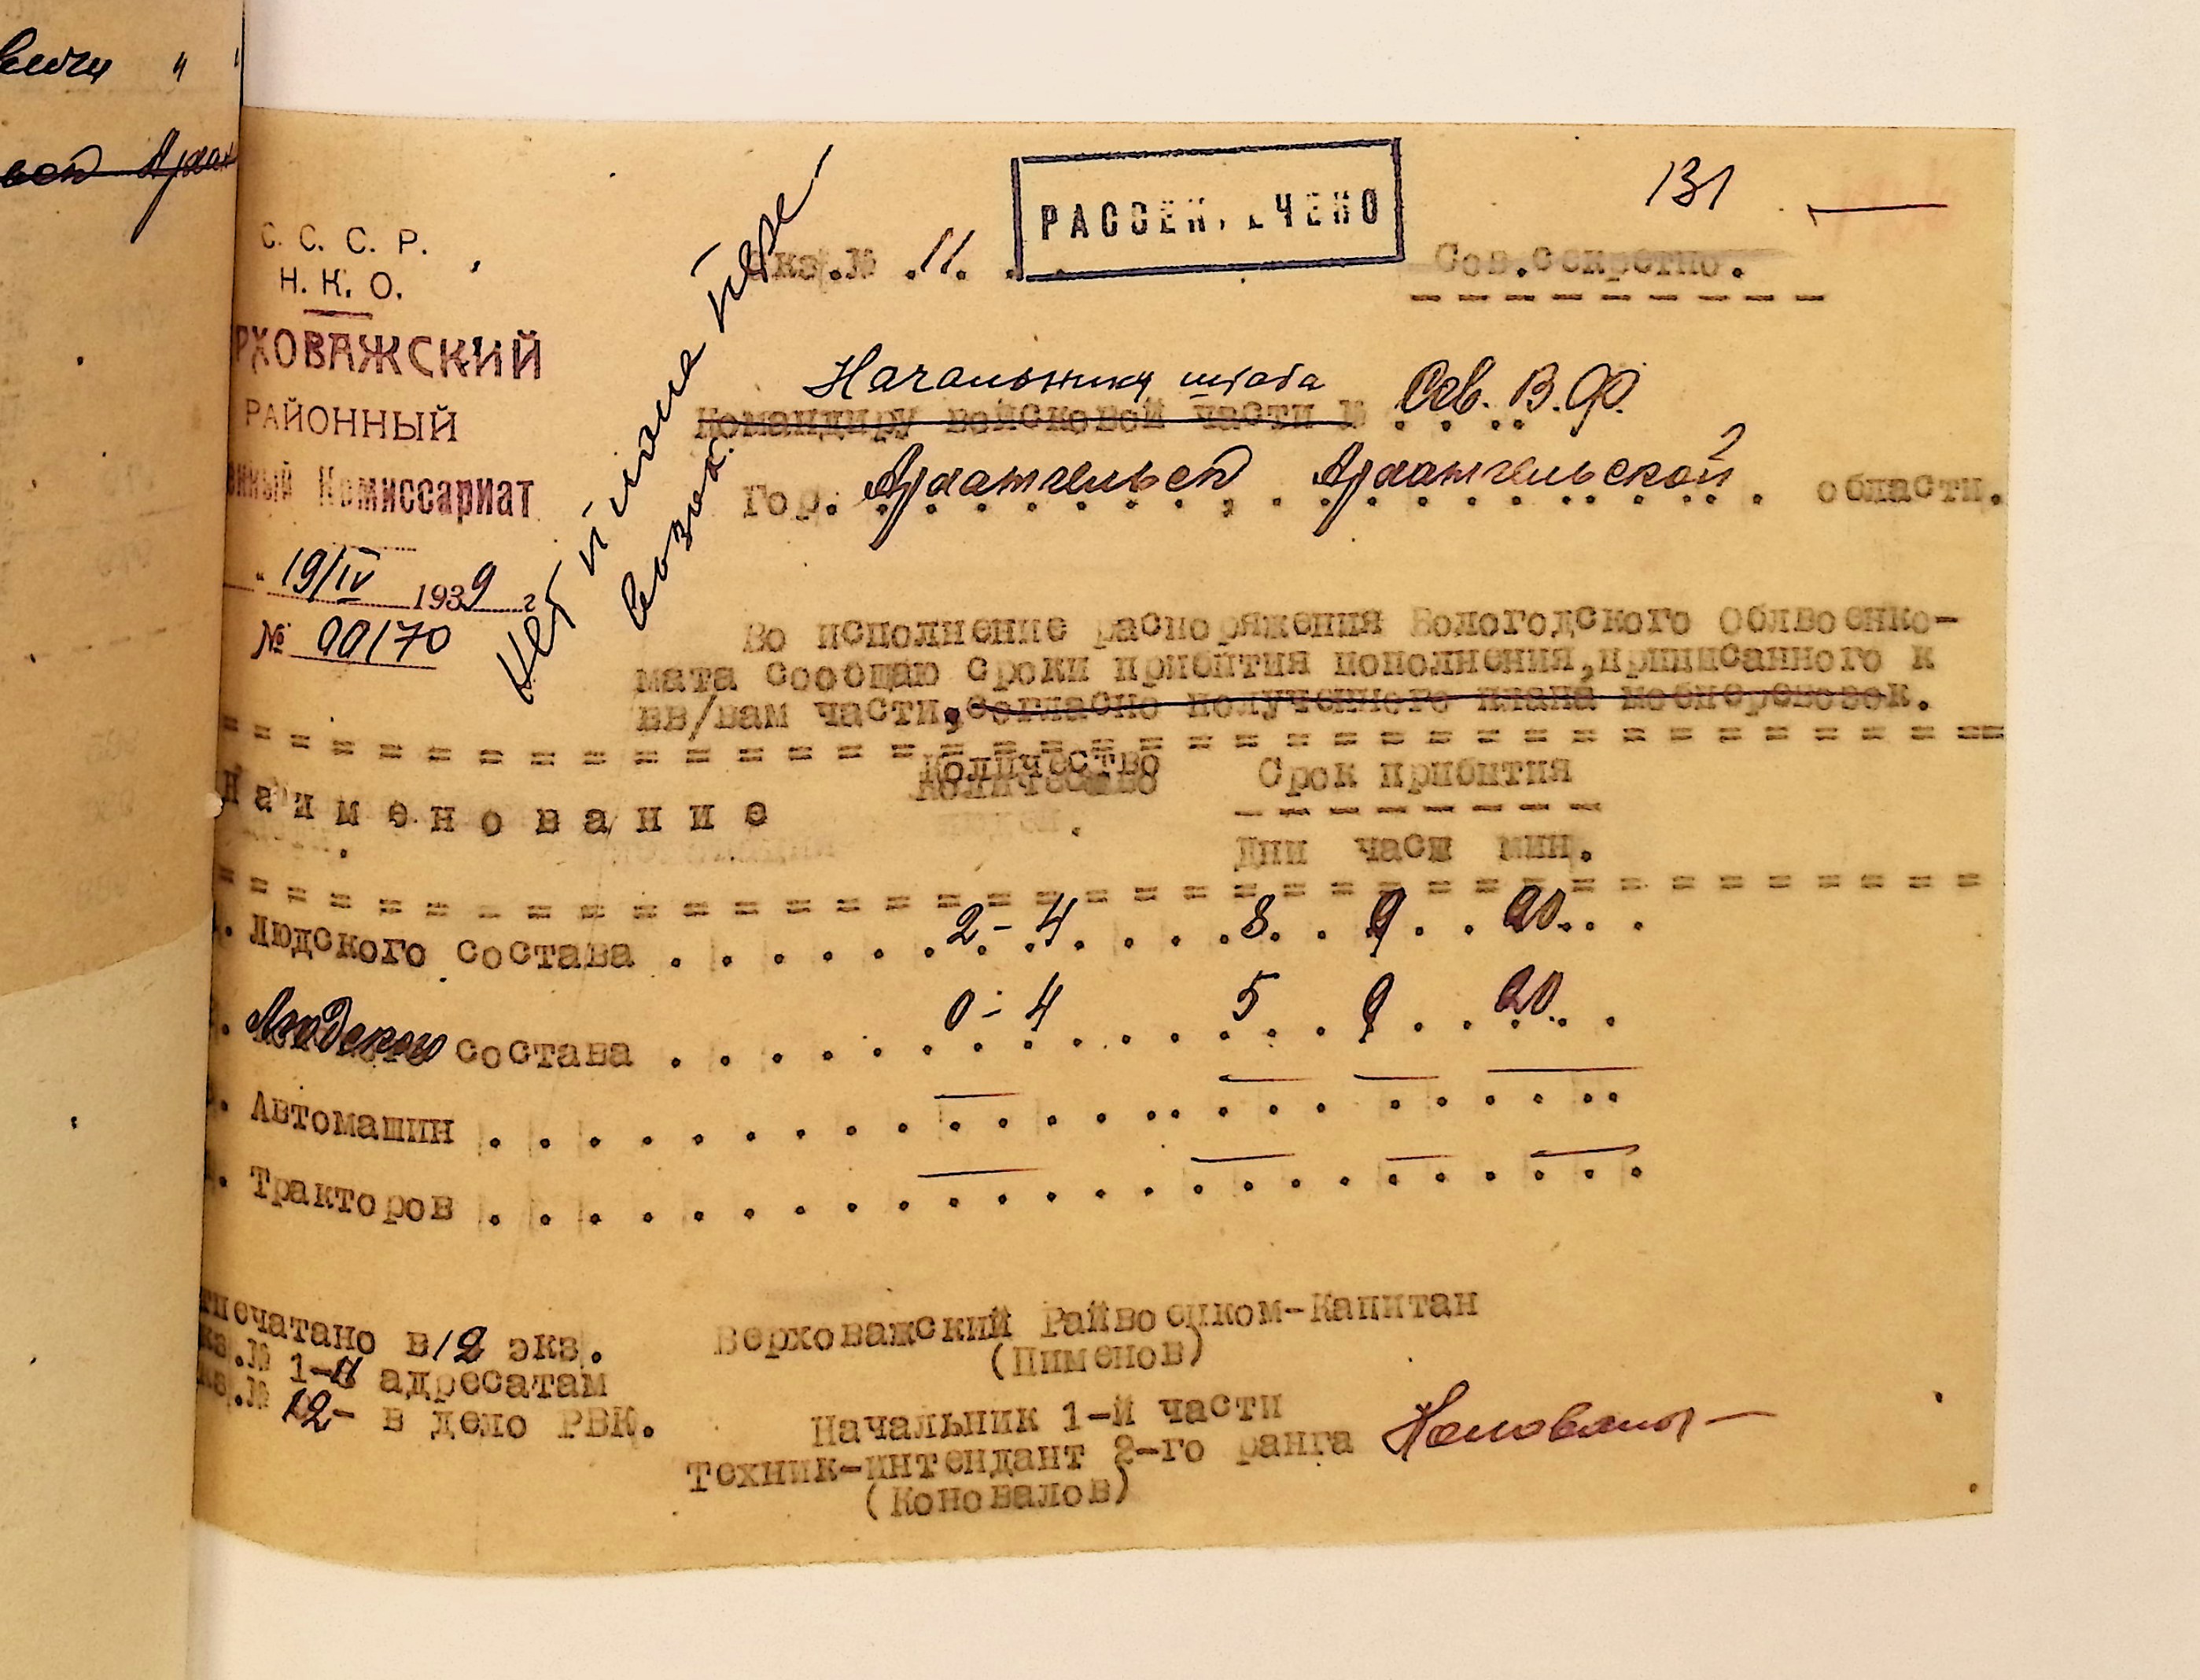 131
РАССЕК ЕЧЕНО
экз.№ 11.
Сов.секретно.
С. С. С. Р.
Н. К. О.
РХОВАЖСКИЙ
РАЙОННЫЙ
нный Комиссариат
" 19/IV 1939 г
№ 00170
Нет плана пере-
возок.
Начальнику штаба Сев. В.Ф.
Командиру войсковой части №
Гор. Архангельск, Архангельской области.
Во исполнение распоряжения Вологодского Облвоенко-
мата сообщаю сроки прибытия пополнения,приписанного к
вв/вам части, согласно полученного плана мобперевозок.
Наименование Количество Срок прибытия
дни часы мин.
. Людского состава 2-4 8 9 20
. Людского состава 0-4 5 9 20
. Автомашин
. Тракторов
тпечатано в 12 экз.
кз.№ 1-11 адресатам
кз.№ 12- в дело РВК.
Верховажский Райвоенком-Капитан
(Пименов)
Начальник 1-й части
Техник-интендант 2-го ранга Коновалов
(Коновалов)